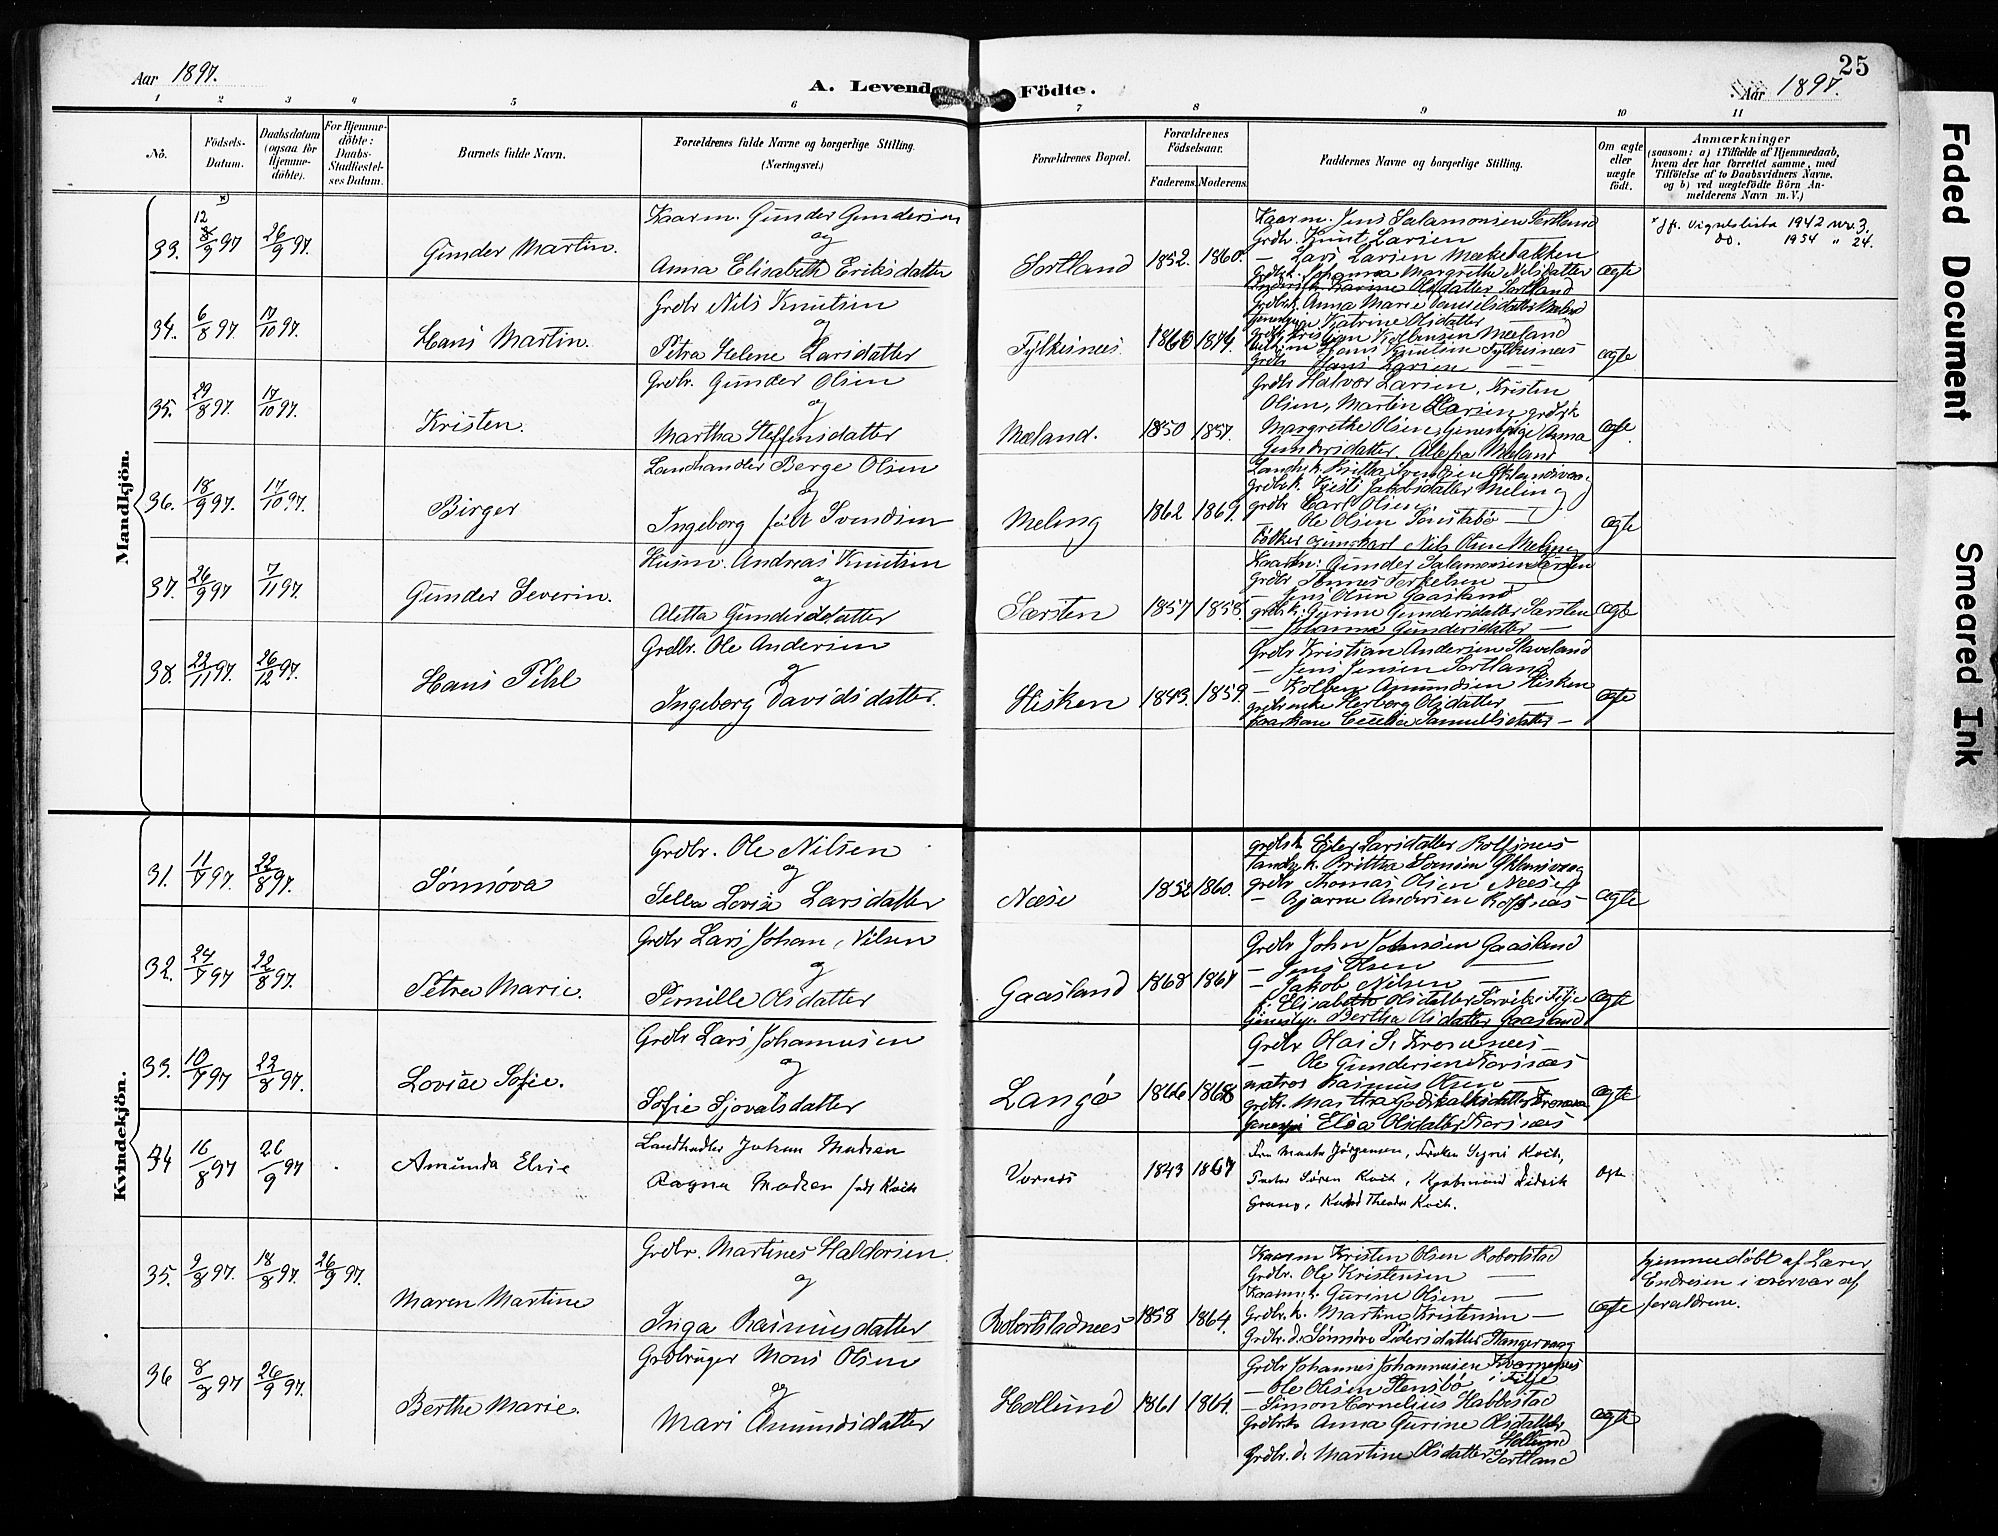 Aar 1897.
A. Levende Födte.
25
Aar 1897.
1 2 3 4 5 6 7 8 9 10 11
No.
Födsels-Datum.
Daabsdatum (ogsaa for Hjemmedöbte).
For Hjemmedöbte: Daabs-Stadfæstelses Datum.
Barnets fulde Navn.
Forældrenes fulde Navne og borgerlige Stilling.
(Næringsvei.)
Forældrenes Bopæl.
Forældrenes Födselsaar.
Faderens. Moderens.
Faddernes Navne og borgerlige Stilling.
Om ægte eller uægte födt.
Anmærkninger
(saasom: a) i Tilfælde af Hjemmedaab, hvem der har forrettet samme, med Tilföielse af to Daabsvidners Navne, og b) ved uægtefödte Börn Anmelderens Navn m.V.)
Mandkjön.
33. 12/9 97 26/9 97. Gunder Martin.
Kaarm. Gunder Gundersen
og
Anna Elisabeth Eriksdatter
Sortland 1852. 1860.
Kaarm. Jens Salamonsen Sortland
Grdbr. Knut Larsen
— Lars Larsen Mæketakken
Grdbrk. Johanna Margrethe Nilsdatter
Karine Olsdatter Sortland
ægte
* Jf. Vigselslista 1942 nr. 3.
do. 1954 " 24.
34. 6/8 97 17/10 97. Hans Martin.
Grdbr Nils Knutsen
og
Petra Helene Larsdatter
Fylkesnes. 1860 1874.
Grdbrk. Anna Marie Danielsdatter Mæland
Katrine Olsdatter
Kristian Kolbensen Mæland
Hans Knutsen Fylkesnes
Grdbr Hans Larsen —
ægte
35. 29/8 97. 17/10 97. Kristen.
Grdbr. Gunder Olsen
og
Martha Steffensdatter
Mæland. 1850 1857.
Grdbr Halvor Larsen, Kristen
Olsen, Martin Larsen grdbrk
Margrethe Olsen, Genesbpige Anna
Gundersdatter, Alle fra Mæland
ægte
36. 18/9 97. 17/10 97. Birger
Landhandler Berge Olsen
og
Ingeborg født Svendsen
Meling 1862 1869.
Landh.k. Britha Svendsen Økslandsvaag
Grdbrk. Kjesti Jakobsdatter Meling
grdbr Carl Olsen
— Ole Olsen Sønstabø —
Nils Olsen Meling
ægte
37. 26/9 97 7/11 97. Gunder Severin.
Husm. Andreas Knutsen
og
Aletta Gundersdatter
Særsten 1857 1858.
Kaarm: Gunder Salamonsen
Grdbr Tønnes Torkelsen —
— Jens Olsen Gaasland
grdbrk. Gurine Gundersdatter Sørsten
— Johanna Gundersdatter —
ægte
38. 22/11 97. 26/12 97. Hans Pihl
Grdbr. Ole Andersen
og
Ingeborg Davidsdatter.
Hisken 1843. 1859.
Grdbr Kristian Andersen Staveland
— Jens Jensen Sortland
— Kolben Amundsen Hisken
grdbrenke Herborg Olsdatter —
Kaarkone Cecilia Samuelsdatter —
ægte
Kvindekjön.
31. 11/7 97. 22/8 97. Sønnøva
Grdbr. Ole Nilsen
og
Sella Lovise Larsdatter
Næse 1852 1860.
grdbrk Eler Larsdatter Rolfsnes
landh.k. Brittha Svensen Økslandsvaag
grdbr Thomas Olsen Næse
— Bjarne Andersen Rolfsnæs —
ægte
32. 24/7 97 22/8 97. Petrea Marie.
Grdbr Lars Johan Nilsen
og
Pernille Olsdatter
Gaasland 1868 1867
Grdbr John Johnsen Gaasland
— Jens Olsen —
— Jakob Nilsen —
p. Elisabeth Olsdatter Sørvik i Tilje
Genesbp. Bertha Olsdatter Gaasland
ægte
33. 10/7 97 22/8 97. Lovise Sofie.
Grdbr Lars Johannesen
og
Sofie Sjovatsdatter
Langø 1866 1868
Grdbr Olai S. Kronenæs —
— Ole Gundersen Korsnæs
matros Rasmus Olsen —
grdbr. Martha Godskalksdatter
Elsa Olsdatter Korsnæs
ægte
34 16/8 97 26/9 97 Amunda Elsie
Landhandler Johan Madsen
Ragna Madsen født Koch
Vornes 1843 1867
Fru Marta Jørgensen, Frøken Sigri Koch,
Pastor Søren Koch, Kjøbmand Didrik
Grung, Theodor Koch.
ægte
35. 9/8 97. 18/8 97. 26/9 97. Maren Martine
Grdbr. Martines Haldorsen
og
Inga Rasmusdatter
Robertstadnes 1858 1864.
Kaarm Kristen Olsen Robertstad
Grdbr. Ole Kristensen —
Kaarm.k. Gurine Olsen —
Grdbr.k. Martine Kristensen —
Grdbr.d. Sønnøve Pedersdatter Stangervaag
ægte
hjemmedøbt af Lærer
Endresen i overvær af
forældrene.
36 8/8 97 26/9 97. Berthe Marie.
Grdbruger Mons Olsen
og
Mari Amundsdatter
Hollund 1861 1864.
Grdbr Johannes Johannesen Kvernenes
— Ole Olsen Stensbø i Tilje
— Simon Cornelius Habbestad
Grdbrk. Anna Gurine Olsdatter Hollund
Grdbr. d. Martine Olsdatter Sortland
ægte
Faded Document
Smeared Ink